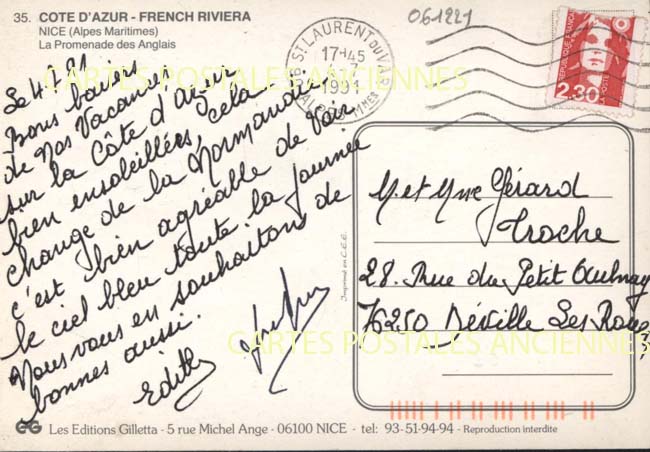 35. COTE D'AZUR - FRENCH RIVIERA
NICE (Alpes Maritimes)
La Promenade des Anglais
061221
ST LAURENT DU VAR
17-45
7
1991
ALPES MMES
REPUBLIQUE FRANCAISE
POSTE
2,30
CARTES POSTALES ANCIENNES
Le 4.7.91
Bons baisers
de Nos Vacances
sur la Côte d'azur
bien ensoleillées, cela
change de la Normandie
c'est bien agréable de voir
le ciel bleu toute la journée
Nous vous en souhaitons de
bonnes aussi.
Edith
M et Mme Gérard
Troche
28. Rue du Petit Aulnay
76250 Déville Les Rouen
Imprimé en C.E.E.
CARTES POSTALES ANCIENNES
Les Editions Gilletta - 5 rue Michel Ange - 06100 NICE - tel: 93-51-94-94 - Reproduction interdite